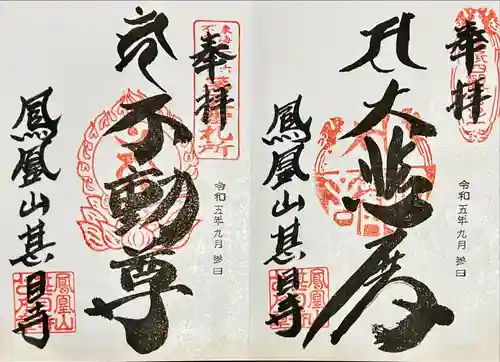 奉拝
大悲殿
令和五年九月参日
鳳凰山甚目寺
奉拝
不動尊
令和五年九月参日
鳳凰山甚目寺